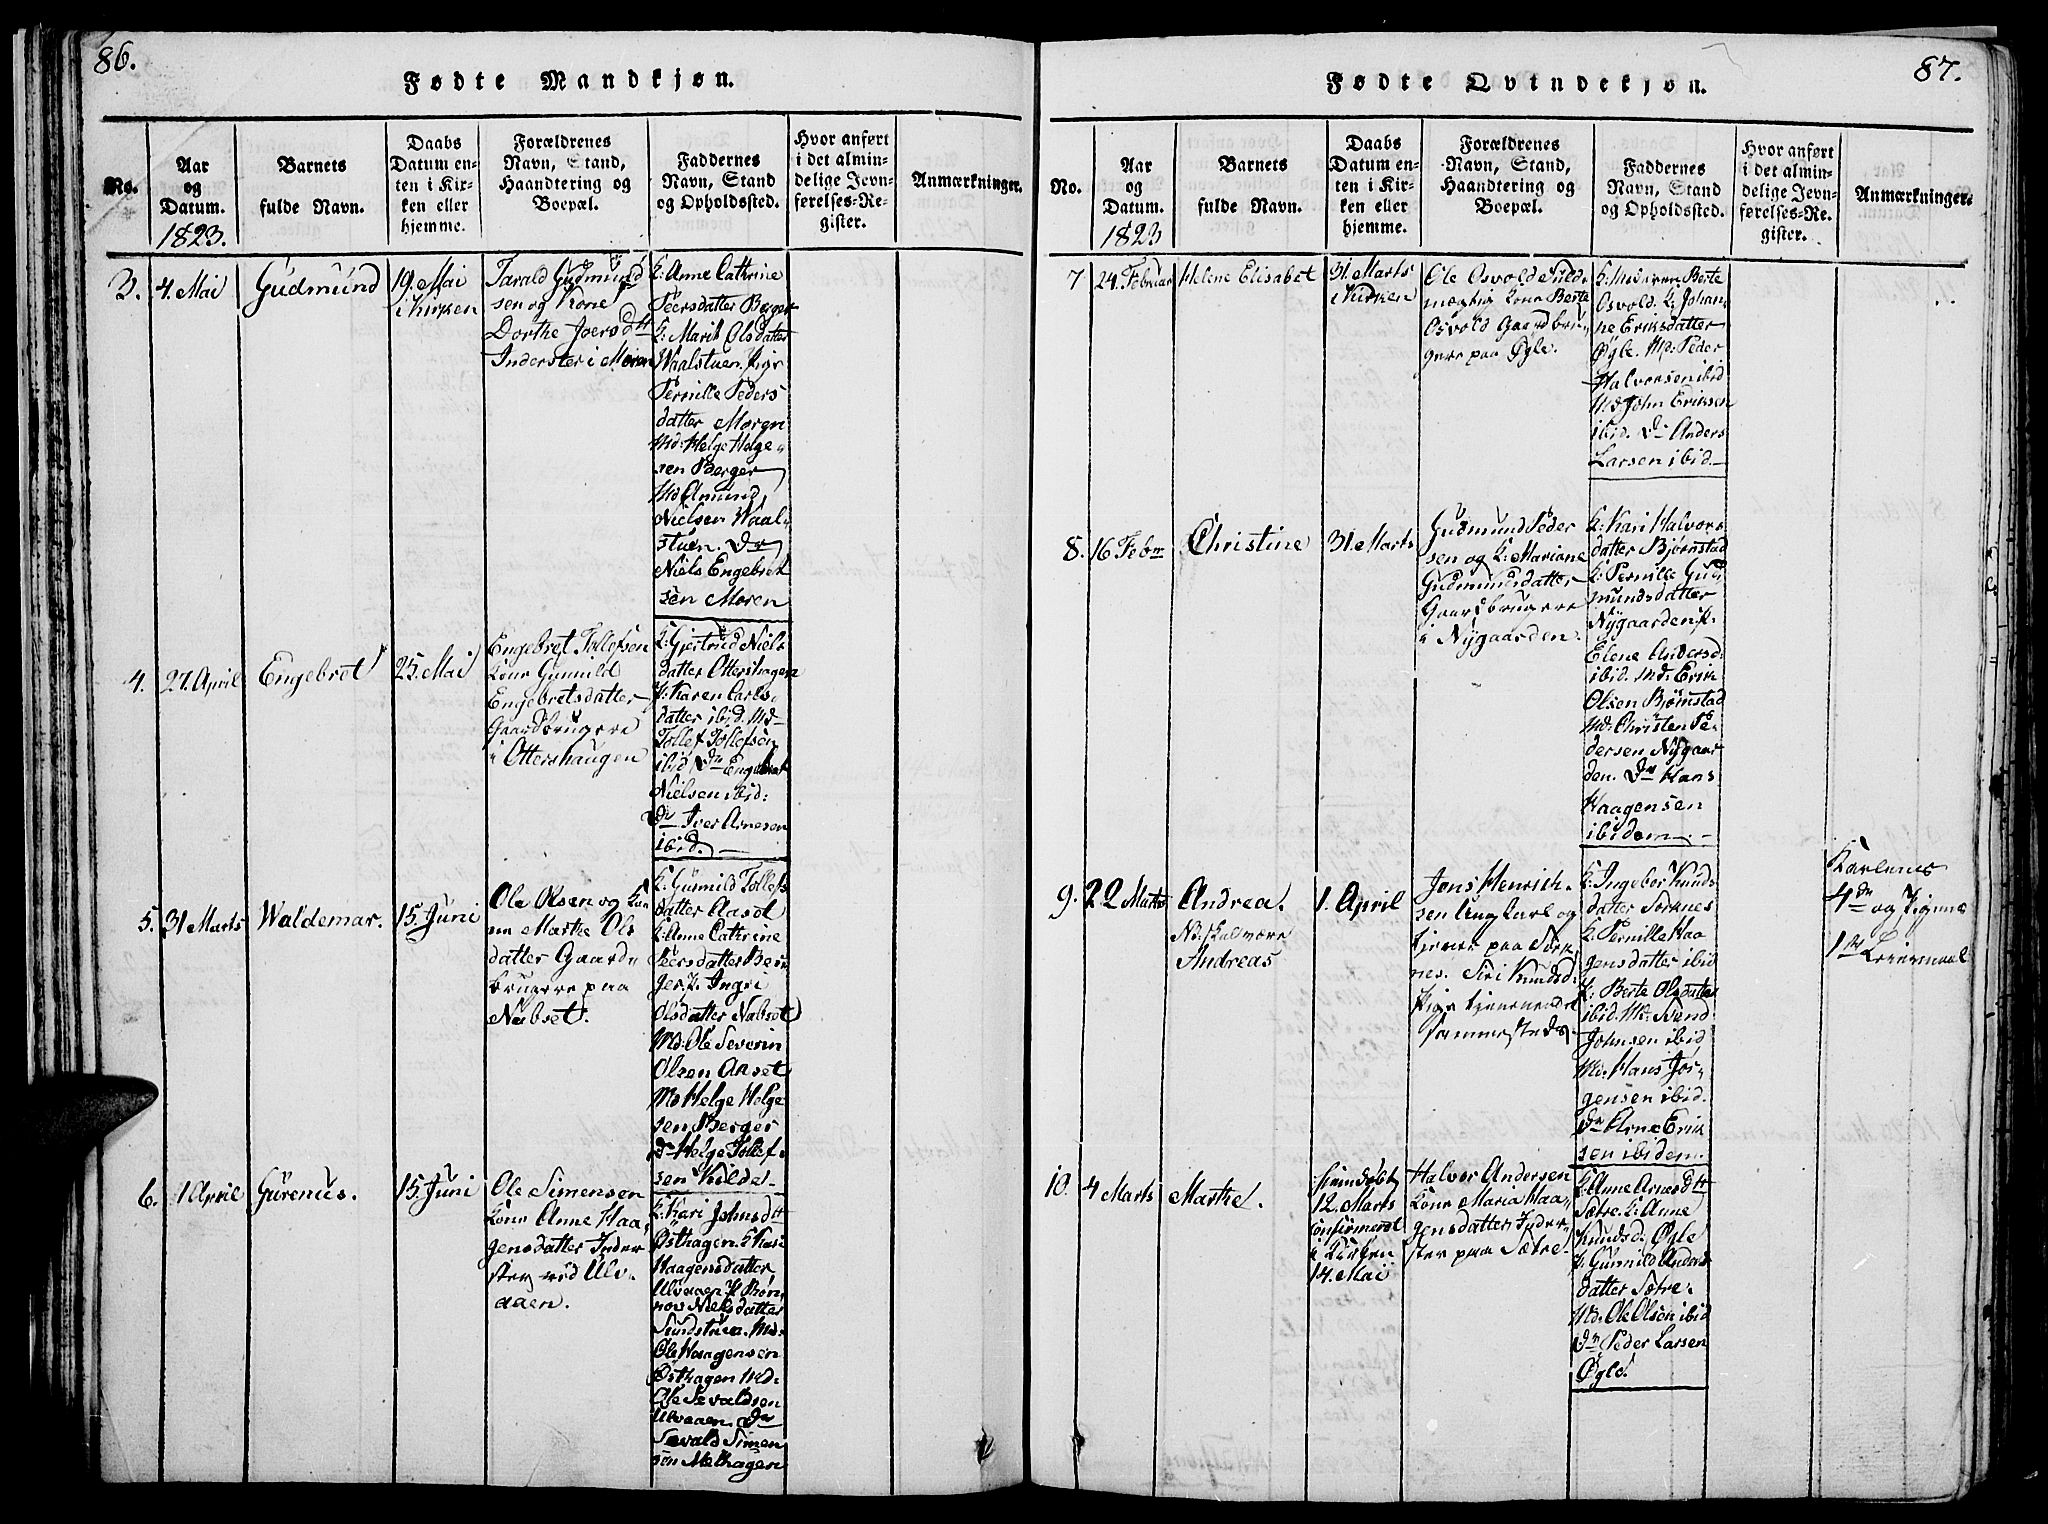 86.
Fødte Mandkjøn.
No.
Aar
og
Datum.
1823.
Barnets
fulde Navn.
Daabs
Datum en-
ten i Kir-
ken eller
hjemme.
Forældrenes
Navn, Stand,
Haandtering og
Boepæl.
Faddernes
Navn, Stand
og Opholdssted.
Hvor anført
i det almin-
delige Jevn-
førelses-Re-
gister.
Anmærkninger.
3.
4. Mai
Gudmund
19. Mai
i Kirken
Tarald Gudmund
sen og Kone
Dorthe Joensdtt
Inderster i Moren
K: Anne Cathrine
Peersdatter Berger
K: Marit Olsdatter
Waalstuen. Pige
Pernille Peders
datter Moren
Md: Helge Helge-
sen Berger
Md Amund
Nielsen Waal-
stuen. Dr
Niels Engebret
sen Moren
4.
27. April
Engebret
25. Mai
Engebret Tollefsen
Kone Gunnild
Engebretsdatter
Gaardbrugere
i Ottershaugen
K: Gjertrud Niels-
datter Ottershagen
P. Karen Carls-
datter ibid. Md-
Tollef Tollefsen
ibid. Dr Engebret
Nielsen ibid:
Dr Iver Arnesen
ibid.
5.
31 Marts
Waldemar.
15. Juni
Ole Olsen og Ko
ne Marthe Ols
datter Gaard-
brugere paa
Nabset.
K. Gunnild Tollefs
datter Aaset
K. Anne Cathrine
Peersdatter Ber-
ger. P. Ingri
Olsdatter Nabset
Md: Ole Severin
Olsen Aaset
Md Helge Helge
sen Berger
Dr Helge Tollef-
sen Kilde.
6.
1 April
Gurenus.
15. Juni
Ole Simensen
Kone Anne Haa-
gensdatter Inder
ster ved Ulv-
aaen.
K: Kari Johnsdtt
Østhagen. K Kari
Haagensdatter
Ulvaaen P. Røn-
nov Nielsdatter
Sundstuen. Md.
Ole Haagensen
Østhagen Md.
Ole Sevaldsen
Ulvaaen. Dr
Sevald Simen
sen Melhagen
87.
Fødte Qvindekjøn.
No.
Aar
og
Datum.
1823
Barnets
fulde Navn.
Daabs
Datum en-
ten i Kir-
ken eller
hjemme.
Forældrenes
Navn, Stand,
Haandtering og
Boepæl.
Faddernes
Navn, Stand
og Opholdssted.
Hvor anført
i det almin-
delige Jevn-
førelses-Re-
gister.
Anmærkninger.
7
24. Februar
Helene Elisabet
31. Marts
i Kirken
Ole Osvold Fuld-
mægtig Kone Berte
Osvold Gaardbru-
gere paa Øgle.
K: Moderen Berte
Osvold. K. Johan-
ne Eriksdatter
Øgle. Md. Peder
Halvorsen ibid
Md John Eriksen
ibid. Dr Anders
Larsen ibid.
8.
16 Febr
Christine
31. Marts
Gudmund Peder
sen og K: Mariane
Gudmundsdatter
Gaardbrugere
i Nygaarden.
K: Kari Halvors
datter Bjørnstad
K: Pernille Gud
mundsdatter
Nygaarden P.
Elene Andersd.
ibid. Md. Erik
Olsen Bjørnstad
Md: Christen Pe-
dersen Nygaar
den. Dr Hans
Haagensen
ibidem.
9.
22 Marts
Andrea.
Nb: skal være
Andreas
1. April
Jens Henrich-
sen Ungkarl og
tjener paa Tørk
nes. Siri Knudsd.
Pige tjenende
sammesteds.
K. Ingebor Knuds
datter Tørknes
K: Pernille Haa
gensdatter ibid
P. Berte Olsdatter
ibid. Md: Svend
Johnsen ibid
Md. Hans Jør-
gensen ibid.
Dr Arne Erik
sen ibidem.
Karlenes
4de og Pigens
1ste Leiermaal
10.
4 Marts
Marthe.
hjemdøbt
12. Marts
confirmeret
i Kirken
14. Mai
Halvor Andersen
Kone Maria Haa-
gensdatter Inder-
ster paa Sætre.
K Anne Arnesdtt
Sætre. K: Anne
Knudsd. Øgle
P. Gunnild Anders
datter Sætre.
Md. Ole Olsen ibid
Dr Peder Larsen
Øgle.